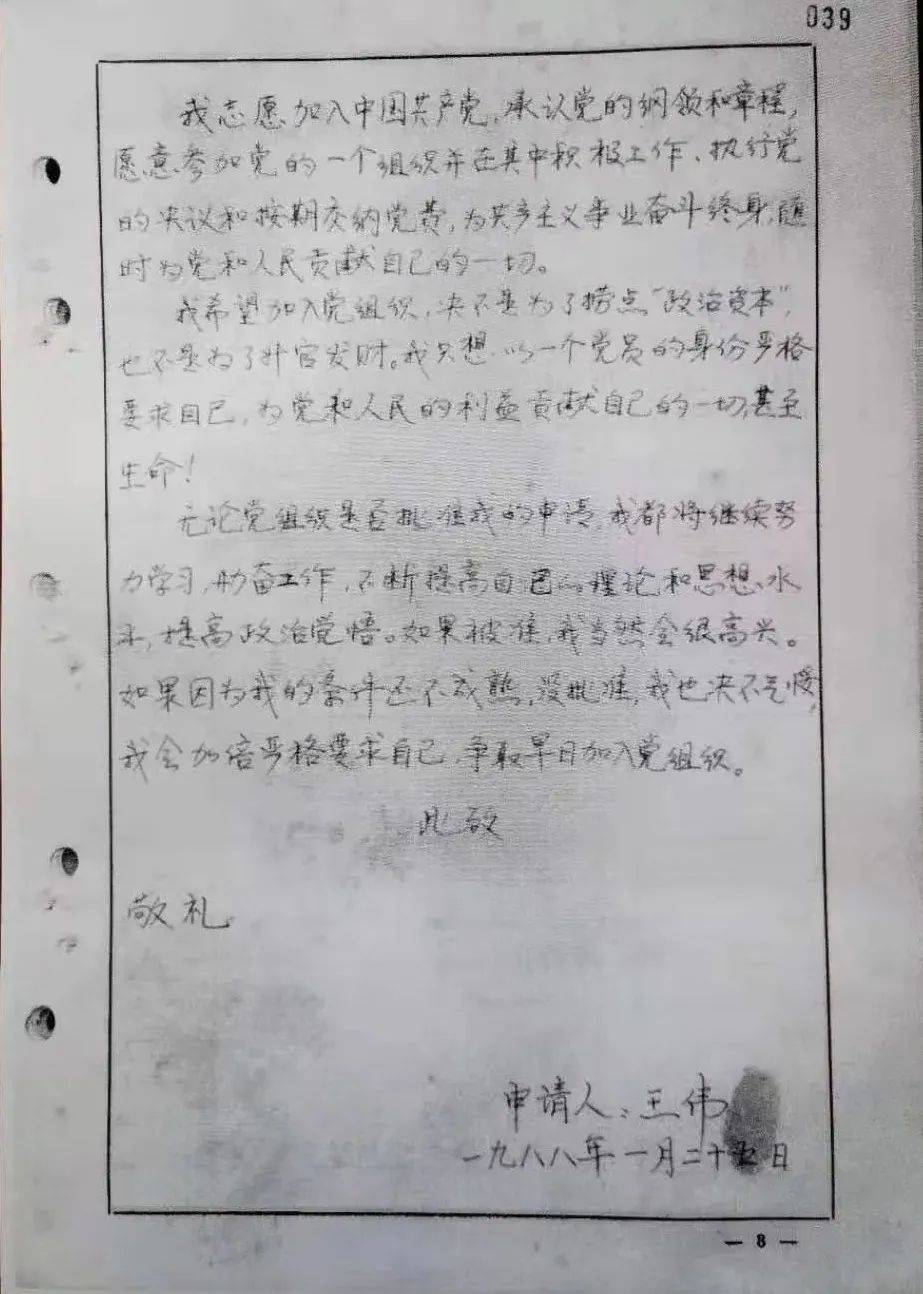 039
我志愿加入中国共产党,承认党的纲领和章程,
愿意参加党的一个组织并在其中积极工作、执行党
的决议和按期交纳党费,为共产主义事业奋斗终身,随
时为党和人民贡献自己的一切。
我希望加入党组织,决不是为了捞点“政治资本”,
也不是为了升官发财。我只想以一个党员的身份严格
要求自己,为党和人民的利益贡献自己的一切,甚至
生命!
无论党组织是否批准我的申请,我都将继续努
力学习,勤奋工作,不断提高自己的理论和思想水
平,提高政治觉悟。如果被准,我当然会很高兴。
如果因为我的条件还不成熟,没批准,我也决不气馁,
我会加倍严格要求自己,争取早日加入党组织。
此致
敬礼
申请人:王伟
一九八八年一月二十五日
— 8 —